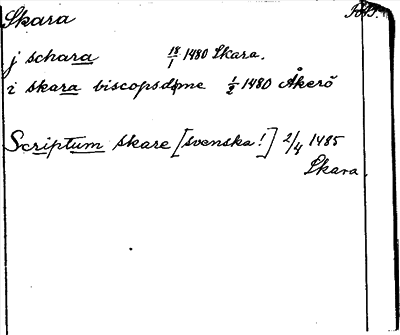 Skara
j schara 18/1 1480 Skara.
i skara biscopsdøme 1/2 1480 Åkerö
Scriptum skare [svenska!] 2/4 1485
Skara.